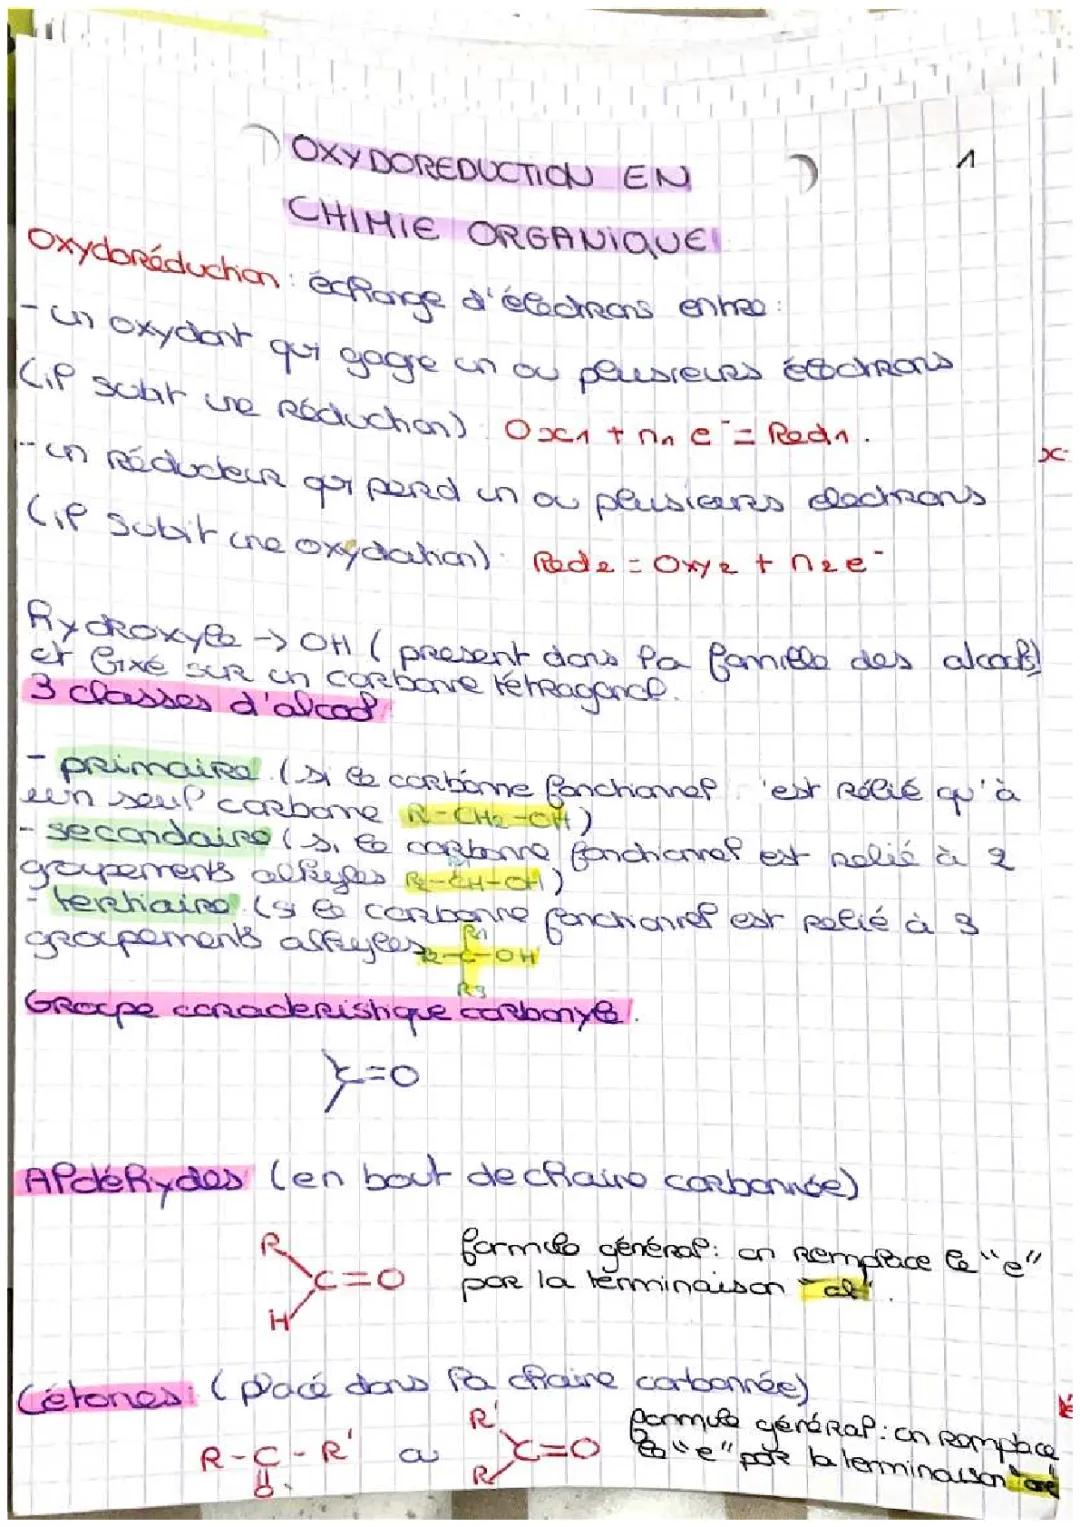 OXYDOREDUCTION EN
1
CHIMIE ORGANIQUE
Oxydoréduction : échange d'électrons entre :
- un oxydant qui gagne un ou plusieurs électrons
(il subit une réduction) : Ox1 + n1 e⁻ = Red1.
- un réducteur qui perd un ou plusieurs electrons
(il subit une oxydation) : Red2 = Oxy2 + n2e⁻
Hydroxyle → OH (présent dans la famille des alcools)
et fixé sur un carbone tétragonal.
3 classes d'alcool
- primaire (si le carbonne fonctionnel 'est rélié qu'à
un seul carbone R-CH2-OH)
- secondaire (si le carbonne fonctionnel est relié à 2
groupements alkyles R-CH-OH)
- tertiaire (si le carbonne fonctionnel est relié à 3
groupements alkyles
R1
R2-C-OH
R3
Groupe caracteristique carbonyle.
C=O
Aldéhydes (en bout de chaine carbonnée)
R
C=O
H
formule général : on remplace le "e"
par la terminaison "al".
Cétones : (placé dans la chaine carbonnée)
R-C-R' ou
O
R'
C=O
R
formule général : on remplace
le "e" par la terminaison "one"